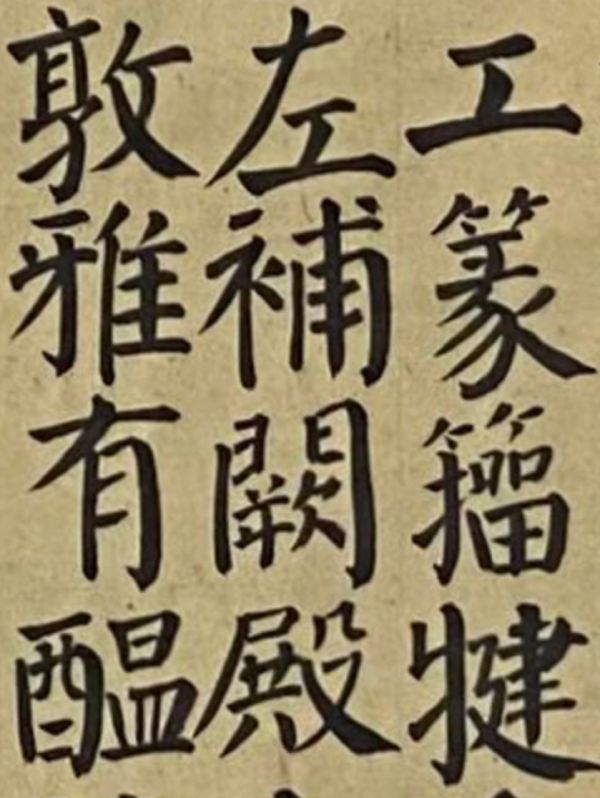 工篆籀犍
左補闕殿
敦雅有醖